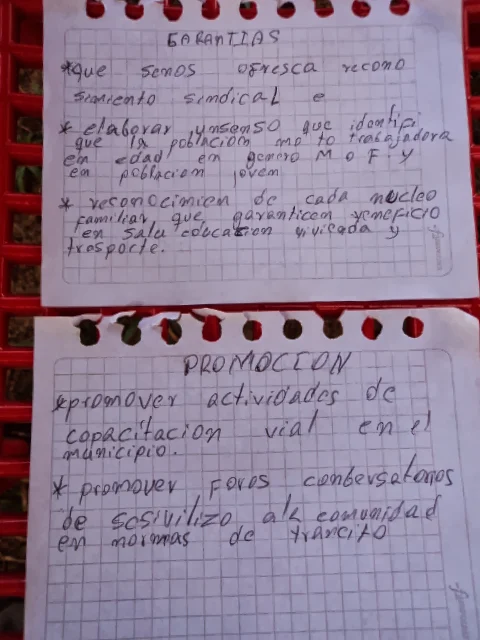 GARANTIAS
*que senos ofresca recono
simiento sindical e
* elaborar unsenso que identifi
que la poblacion moto trabajadora
en edad en genero M o F. y
en poblacion joven
* reconocimien de cada nucleo
familiar que garanticen veneficio
en salu educasion vivicada y
trasporte.
PROMOCION
*promover actividades de
capacitacion vial en el
municipio.
* promover Foros conbersatorios
de sosivilizo ala comunidad
en normas de trancito